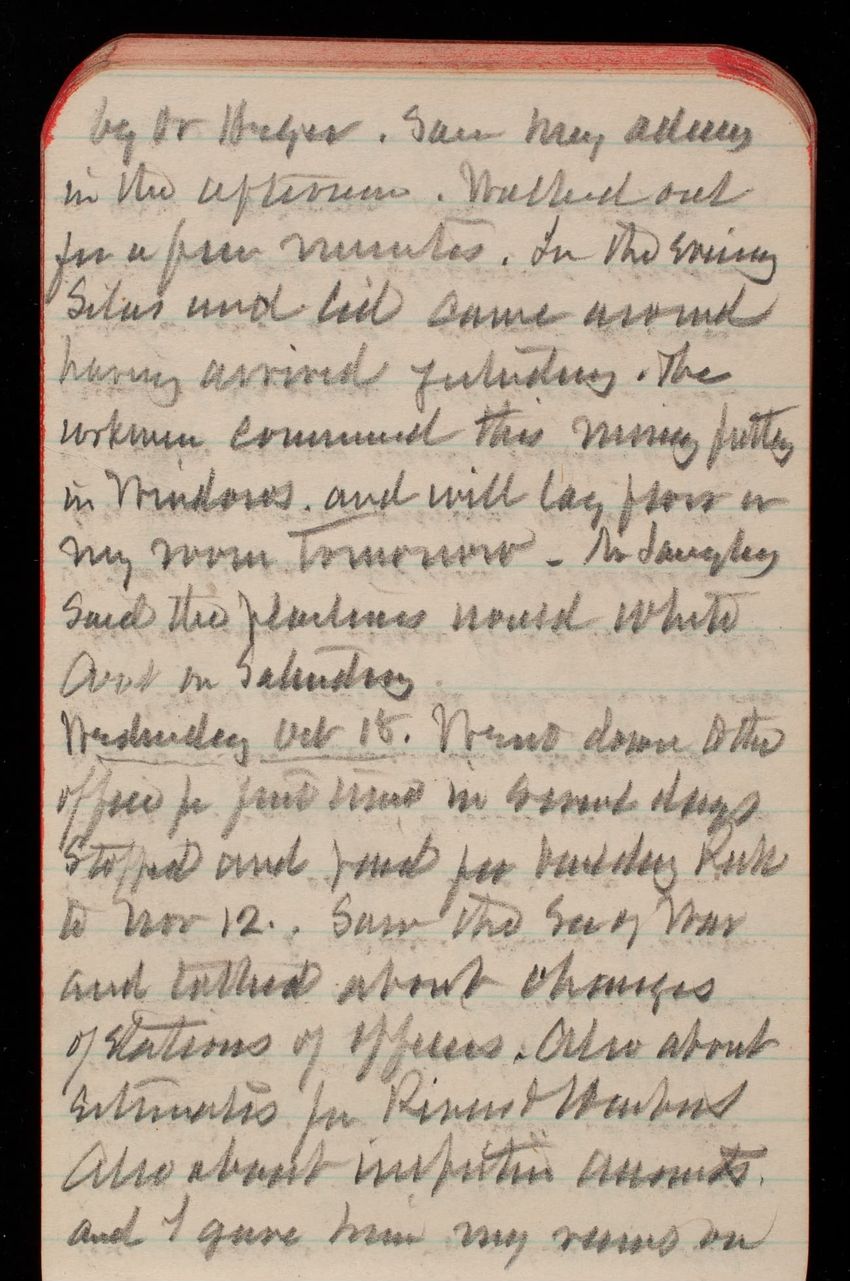 by Dr Heger. Saw Mrs Adams
in the afternoon. Walked out
for a few minutes. In the evening
Silas and Lid came around
having arrived yesterday. The
workmen commenced this morning putting
in Windows. and will lay floor in
my room tomorrow - Mr Langley
said the plasterers would white
coat on Saturday
Wednesday Oct 18. Went down to the
office for first time in several days
Stopped and paid for Building Risk
to Nov 12.. Saw the Sec of War
and talked about changes
of Stations of officers. Also about
estimates for Rivers & Harbors
Also about inspection accounts.
and I gave him my views on